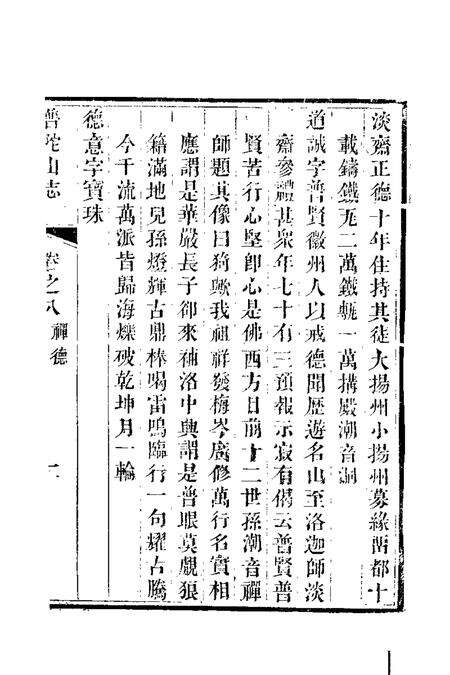 淡齋正德十年住持其徒大揚州小揚州募緣留都十
載鑄鐵瓦二萬鐵甎一萬搆嚴潮音洞
道誠字普賢徽州人以戒德聞歷遊名山至洛迦師淡
齋參禮甚衆年七十有三預報示寂有偈云普賢普
賢苦行心堅卽心是佛西方目前十二世孫潮音禪
師題其像曰猗歟我祖祥發梅岑廣修萬行名實相
應謂是華嚴長子卻來補洛中興謂是普眼莫覷狼
籍滿地兒孫燈輝古鼎棒喝雷鳴臨行一句耀古騰
今千流萬派皆歸海爍破乾坤月一輪
德意字寶珠
普陀山志
卷之八 禪德